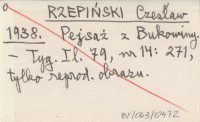 RZEPIŃSKI Czesław
1938. Pejsaż z Bukowiny.
– Tyg. Il. 79, nr 14: 271,
tylko reprod. obrazu.
BV/063/0472